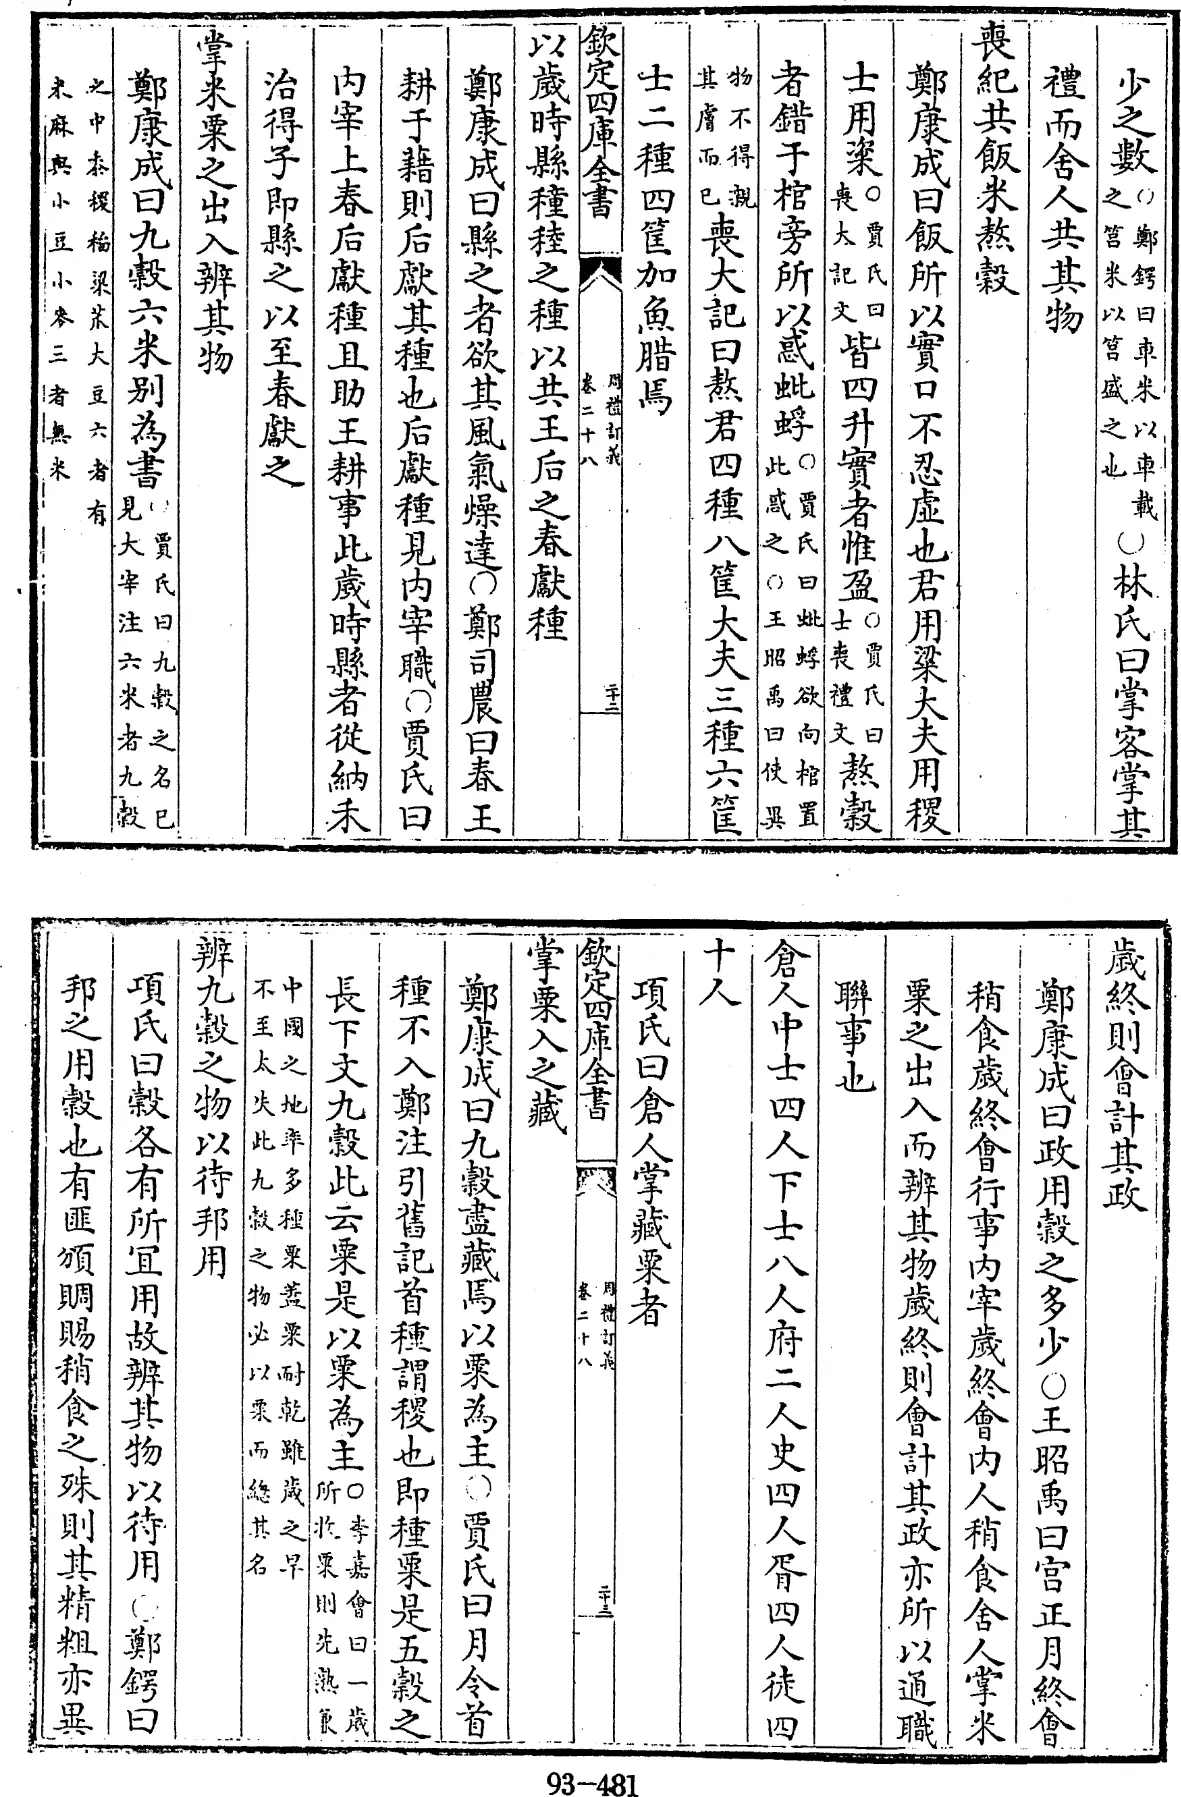 少之數○鄭鍔曰車米以車載之筥米以筥盛之也○林氏曰掌客掌其
禮而舍人共其物
喪紀共飯米熬穀
鄭康成曰飯所以實口不忍虛也君用梁大夫用稷
士用粢○賈氏曰喪大記文皆四升實者惟盈○賈氏曰士喪禮文熬穀
者錯于棺旁所以惑蚍蜉○賈氏曰蚍蜉欲向棺置此惑之○王昭禹曰使異
物不得親其膚而已喪大記曰熬君四種八筐大夫三種六筐
士二種四筐加魚腊焉
欽定四庫全書 周禮訂義 卷二十八 二十二
以歲時縣穜稑之種以共王后之春獻種
鄭康成曰縣之者欲其風氣燥達○鄭司農曰春王
耕于藉則后獻其種也后獻種見内宰職○賈氏曰
内宰上春后獻種且助王耕事此歲時縣者從納禾
治得子即縣之以至春獻之
掌米粟之出入辨其物
鄭康成曰九穀六米别為書○賈氏曰九穀之名已見大宰注六米者九穀
之中黍稷稻粱苽大豆六者有米麻與小豆小麥三者無米
歲終則會計其政
鄭康成曰政用穀之多少○王昭禹曰宫正月終會
稍食歲終會行事内宰歲終會内人稍食舍人掌米
粟之出入而辨其物歲終則會計其政亦所以通職
聯事也
倉人中士四人下士八人府二人史四人胥四人徒四
十人
項氏曰倉人掌藏粟者
欽定四庫全書 周禮訂義 卷二十八 二十三
掌粟入之藏
鄭康成曰九穀盡藏焉以粟為主○賈氏曰月令首
種不入鄭注引舊記首種謂稷也即種粟是五穀之
長下文九穀此云粟是以粟為主○李嘉會曰一歲所收粟則先熟氣
中國之地率多種粟蓋粟耐乾雖歲之旱不至太失此九穀之物必以粟而總其名
辨九穀之物以待邦用
項氏曰穀各有所宜用故辨其物以待用○鄭鍔曰
邦之用穀也有匪頒賙賜稍食之殊則其精粗亦異
93-481